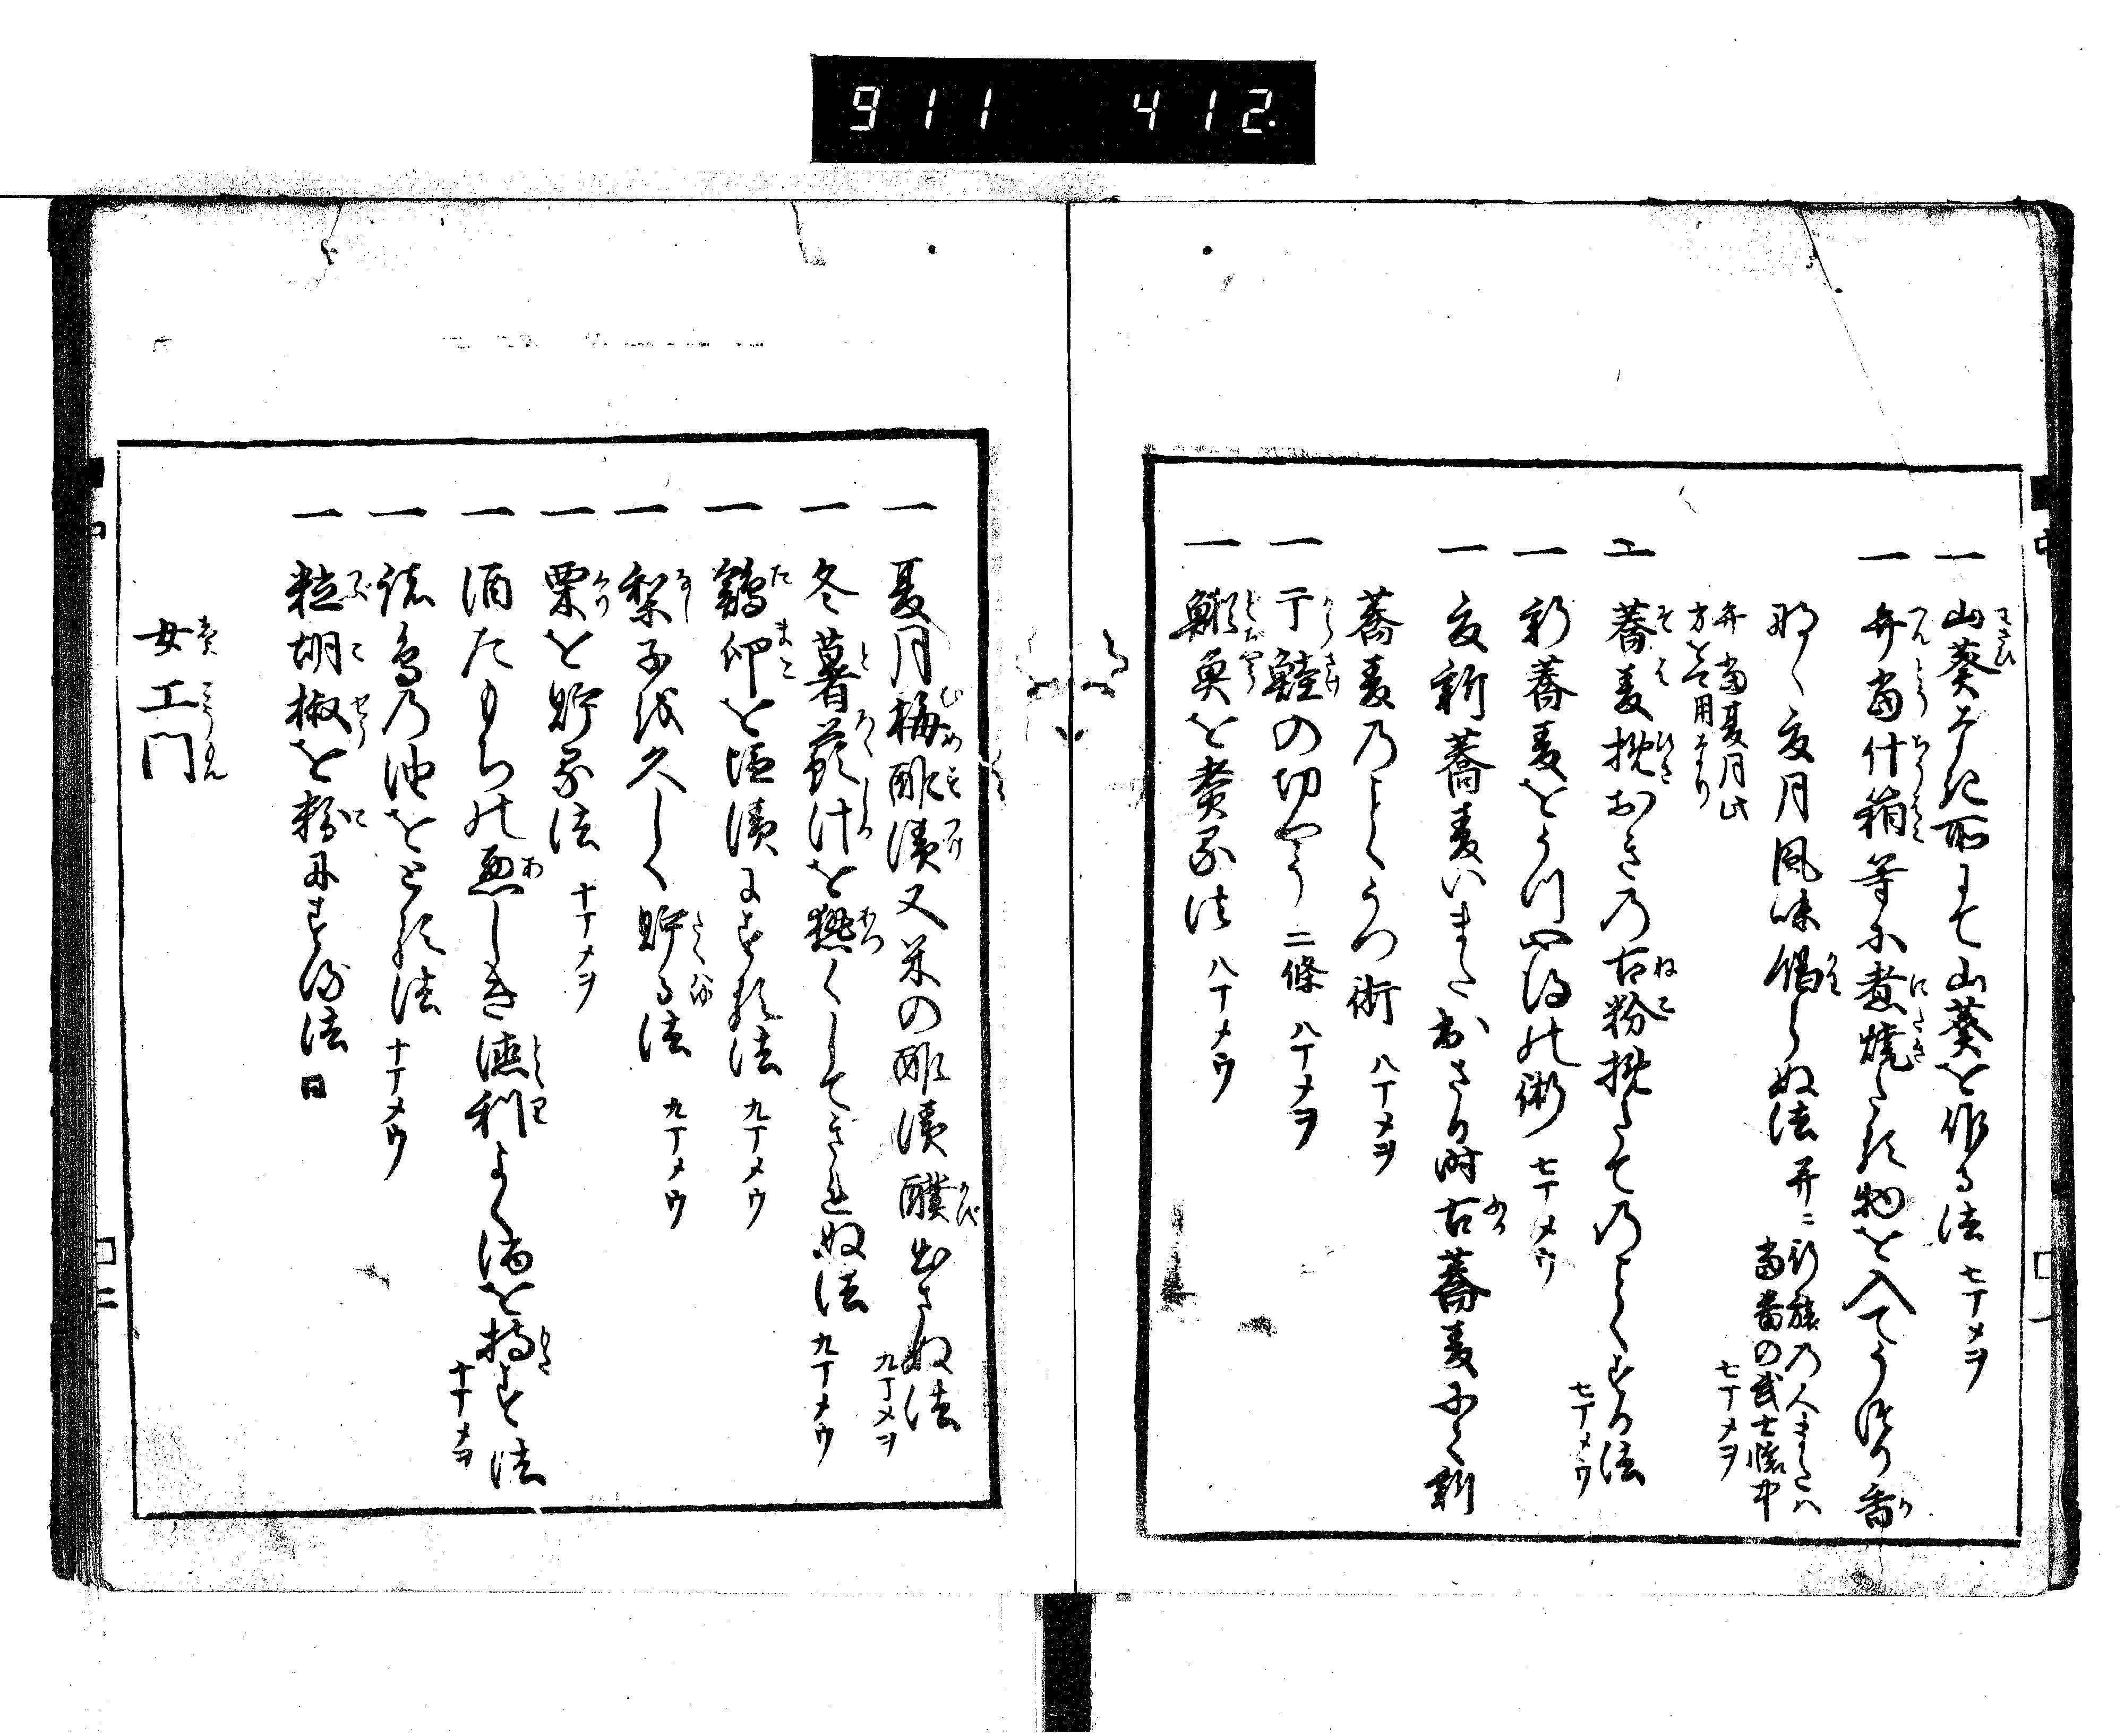 911 412.
一 山葵なき所にて山葵を作る法 七丁メヲ
一 弁当什箱等に煮焼たる物を入てうつり香
なく夏月風味
損らぬ法 并ニ 行旅の人または
当番の武士懐中
弁当夏月此
方を用はよし 七丁メヲ
一 蕎麦挽おきの古粉挽たてのことくする法 七丁メウ
一 新蕎麦をうつ心得の術 七丁メウ
一 夏新蕎麦いまた出さる時古蕎麦にて新
蕎麦のことくうつ術 八丁メヲ
一 干鮭の切やう 二條 八丁メヲ
一 鰌魚を煮る法 八丁メウ
一 夏月梅酢漬又菜の酢漬醭出さぬ法 九丁メヲ
一 冬薯蕷汁を熱くしてきれぬ法 九丁メウ
一 鶏卵を塩漬にする法 九丁メウ
一 梨子を久しく貯る法 九丁メウ
一 栗を貯る法 十丁メヲ
一 酒たもちの悪しき徳利よく酒を持する法 十丁メヲ
一 諸鳥の油をとる法 十丁メウ
一 粒胡椒を粉にする法 日
女工門